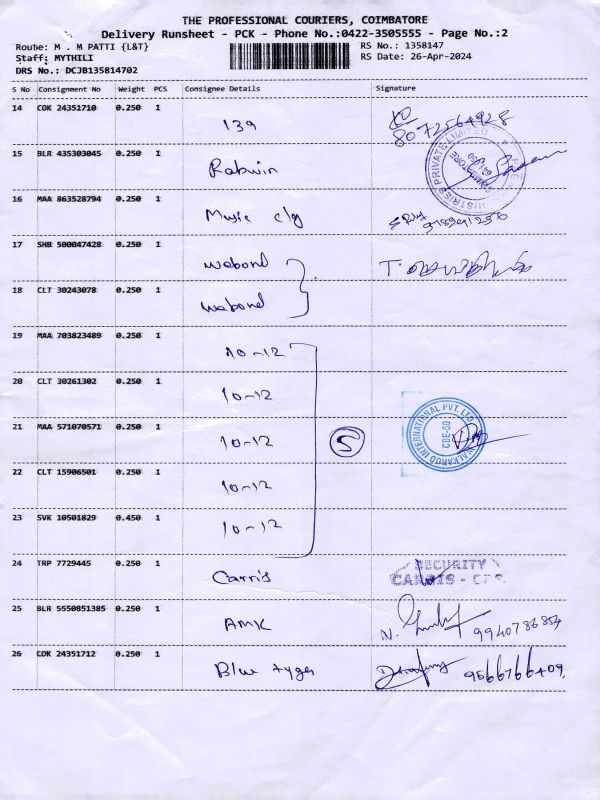 THE PROFESSIONAL COURIERS, COIMBATORE
Delivery Runsheet - PCK - Phone No.:0422-3505555 - Page No.:2
Route: M . M PATTI {L&T} RS No.: 1358147
Staff: MYTHILI RS Date: 26-Apr-2024
DRS No.: DCJB135814702
S No Consignment No Weight PCS Consignee Details Signature
14 COK 24351710 0.250 1 139 8072564928
15 BLR 435303045 0.250 1 Rabwin
PRIVATE LIMITED
16 MAA 863528794 0.250 1 Music clg
17 SHB 500047428 0.250 1 webond
18 CLT 30243078 0.250 1 webond
19 MAA 703823489 0.250 1 10-12
20 CLT 30261302 0.250 1 10-12
21 MAA 571070571 0.250 1 10-12 5
INTERNATIONAL PVT. LTD.
22 CLT 15906501 0.250 1 10-12
23 SVK 10501829 0.450 1 10-12
24 TRP 7729445 0.250 1 Carris SECURITY
CARRIS -
25 BLR 5550851385 0.250 1 AMK N. 9940786854
26 COK 24351712 0.250 1 Blue tyger 9566766409